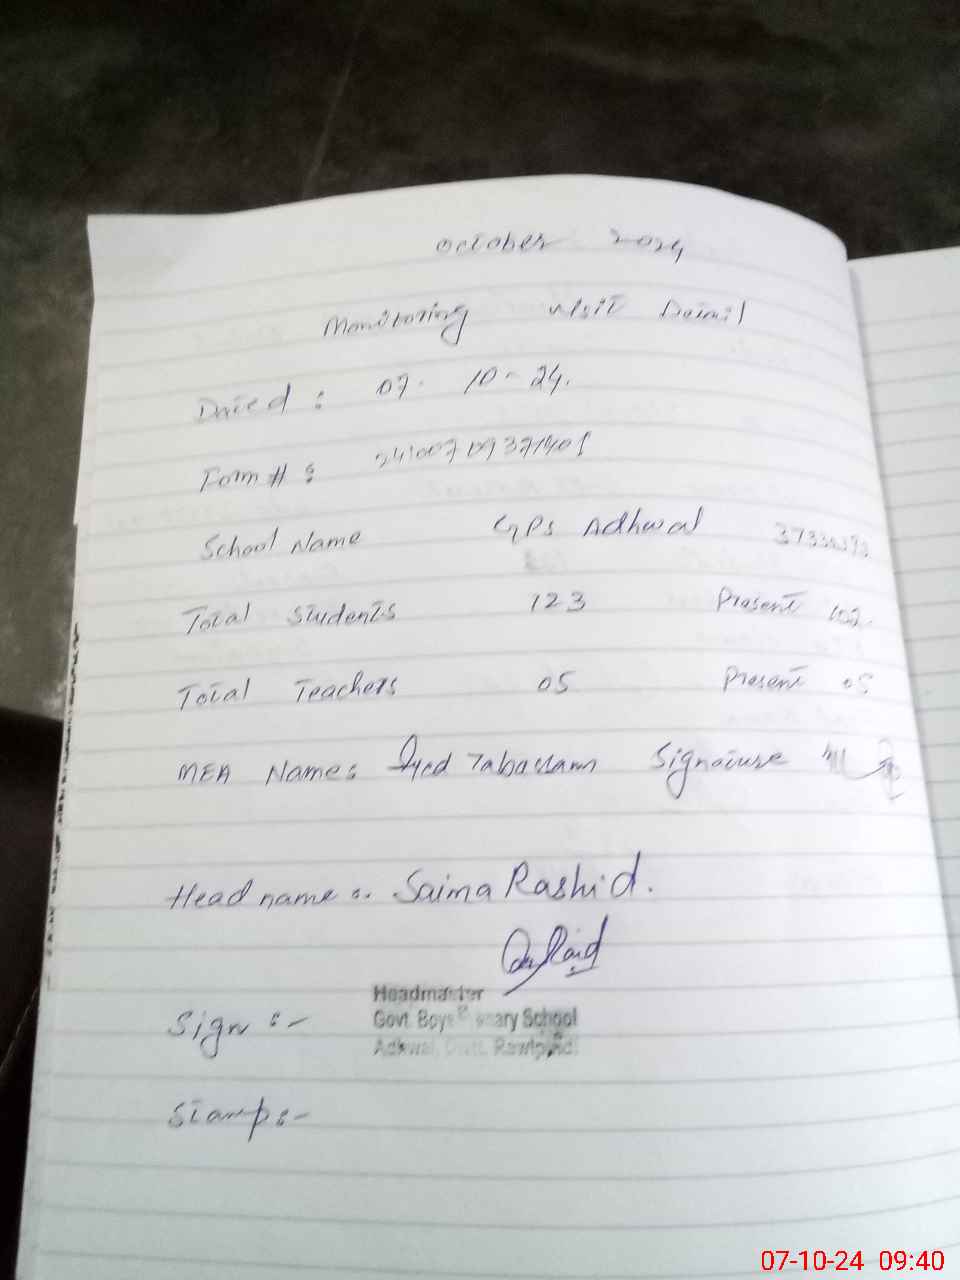 October 2024
Monitoring Visit Detail
Dated : 07 - 10 - 24.
Form # :
School Name GPS Adhwal
Total Students 123 Present 102
Total Teachers 05 Present 05
MEA Name: Syed Tabassam Signature
Head name :. Saima Rashid.
Headmaster
Sign :- Govt. Boys School
Adhwal, Distt. Rawalpindi
Stamp :-
07-10-24 09:40